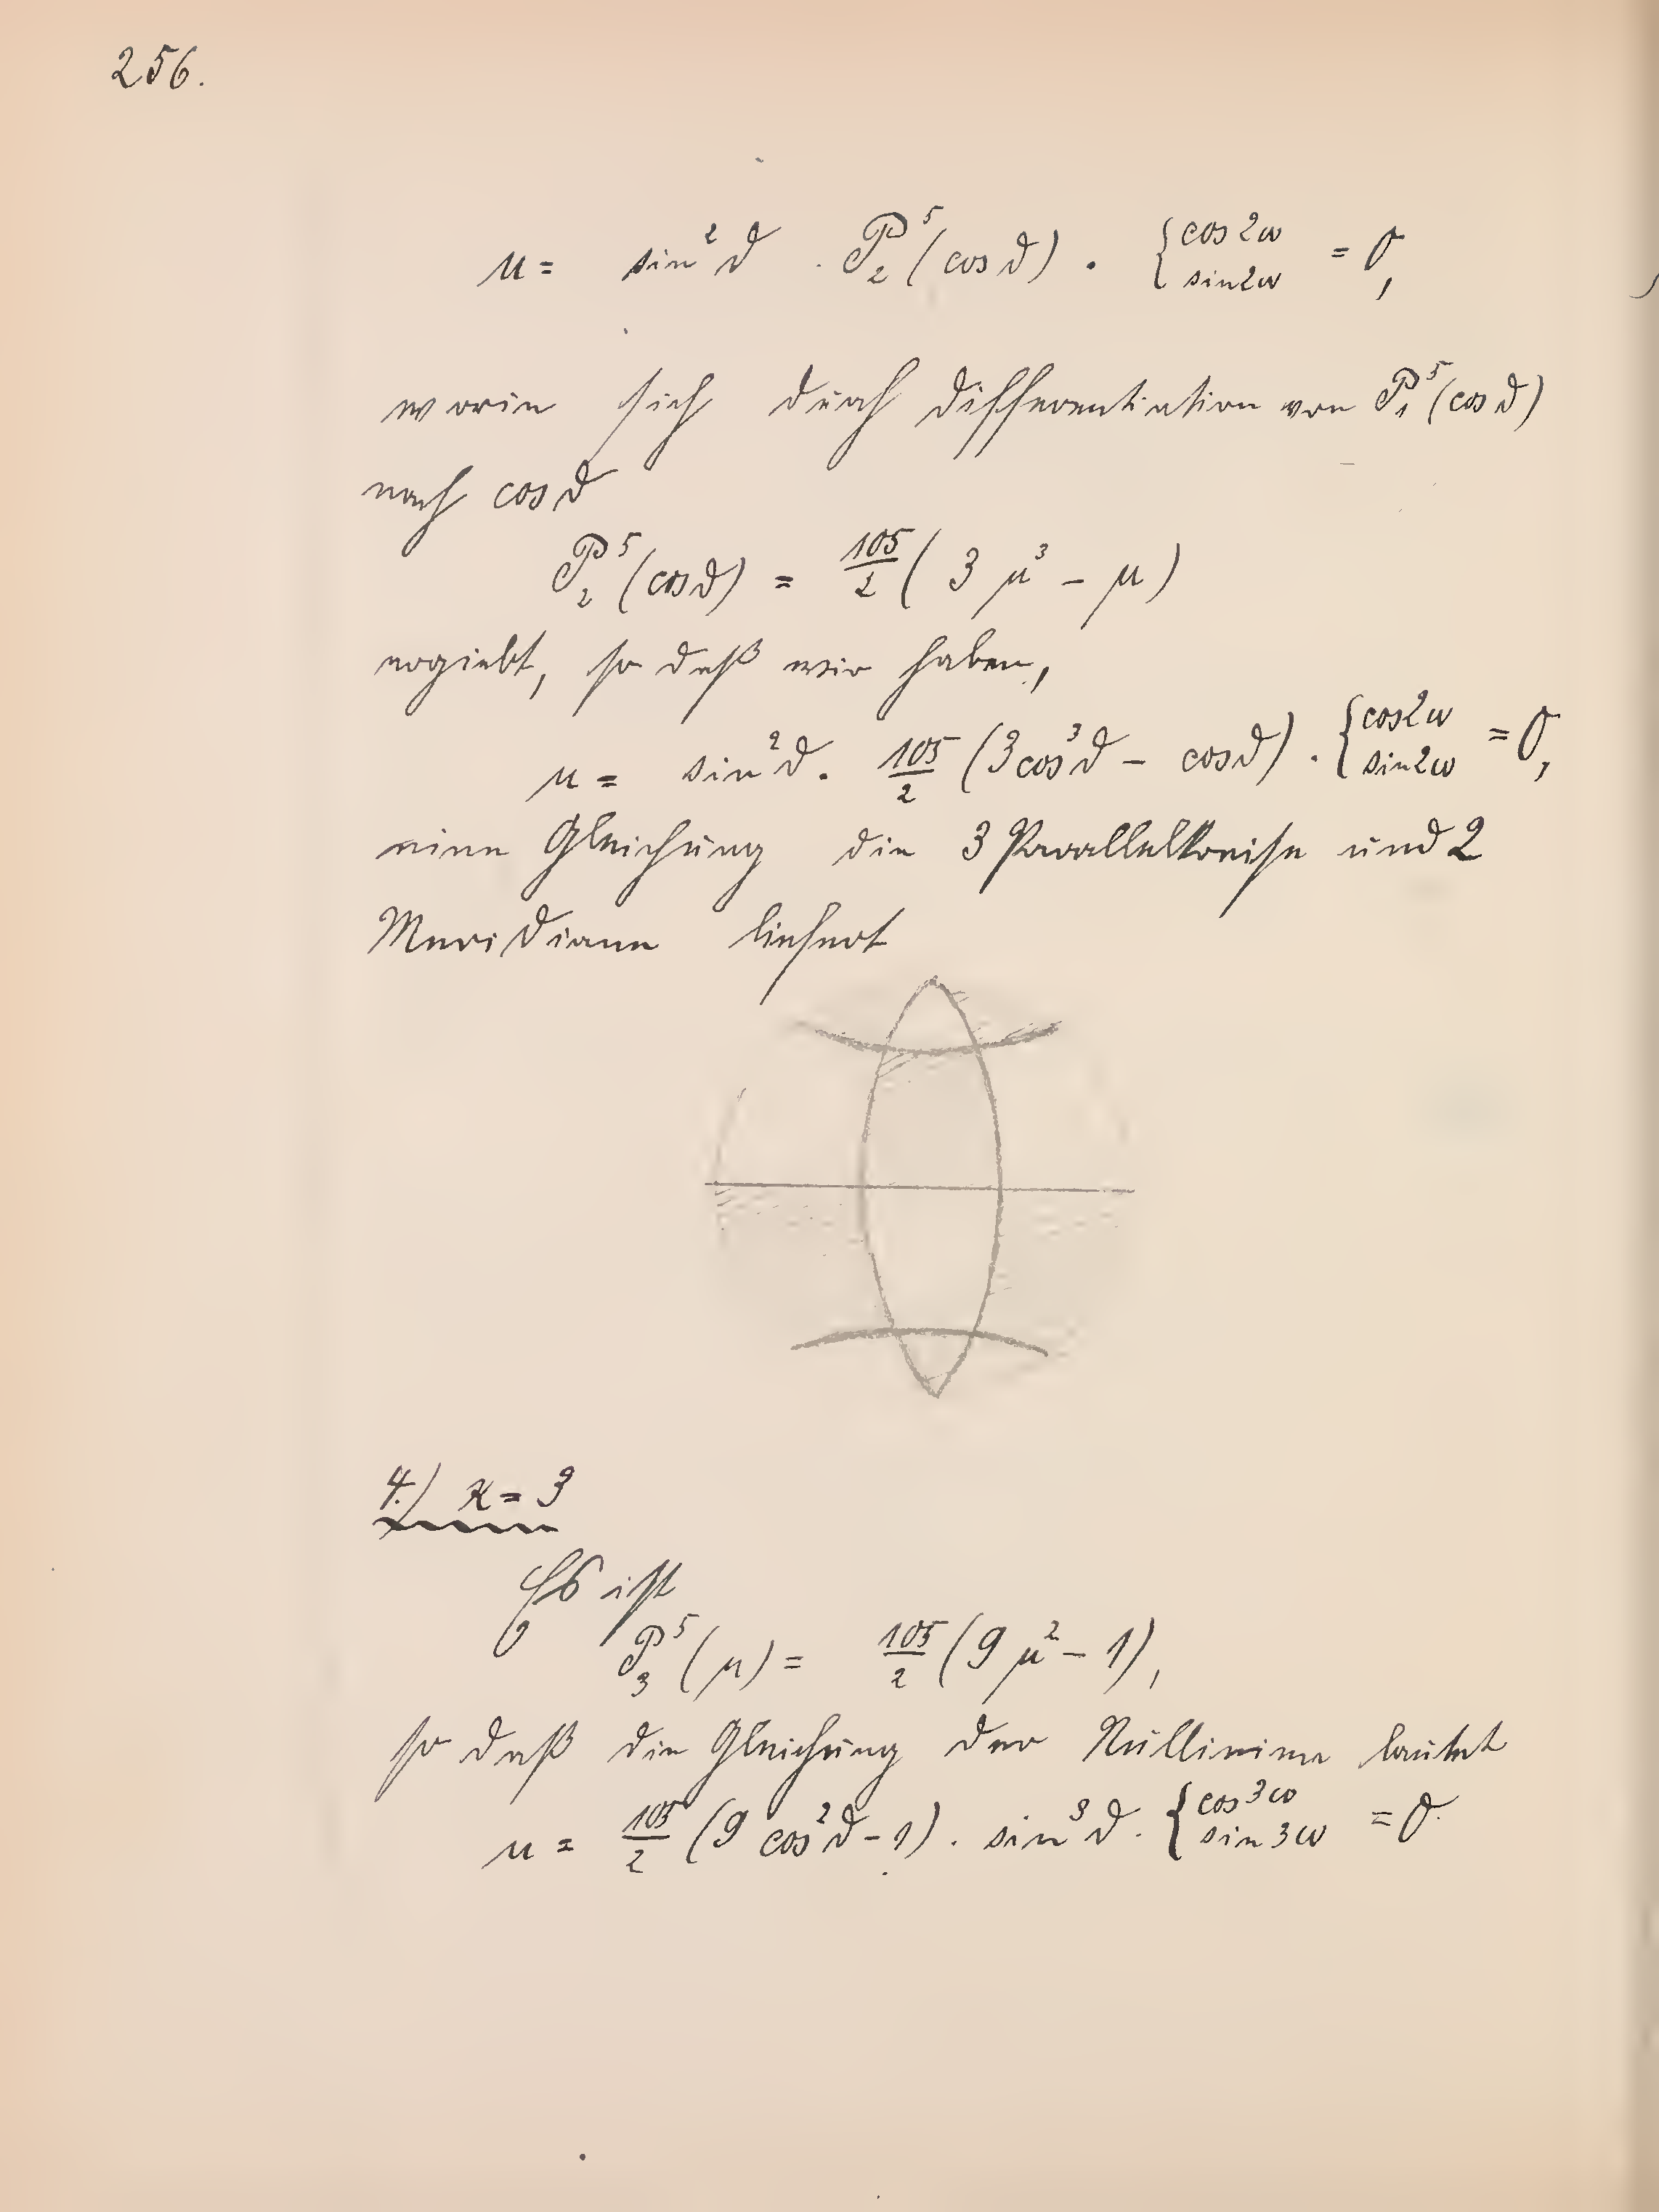 256.
u = sin²ϑ · P₂⁵(cosϑ) · {cos2ω / sin2ω = 0,
worin sich durch Differentiation von P₁⁵(cosϑ)
nach cosϑ
P₂⁵(cosϑ) = 105/2 (3μ³ – μ)
ergiebt, so daß wir haben,
u = sin²ϑ · 105/2 (3cos³ϑ – cosϑ) · {cos2ω / sin2ω = 0,
eine Gleichung die 3 Parallelkreise und 2
Meridiane liefert
4.) κ = 3
Es ist
P₃⁵(μ) = 105/2 (9μ² – 1),
so daß die Gleichung der Nulllinien lautet
u = 105/2 (9 cos²ϑ – 1) · sin³ϑ · {cos3ω / sin3ω = 0.